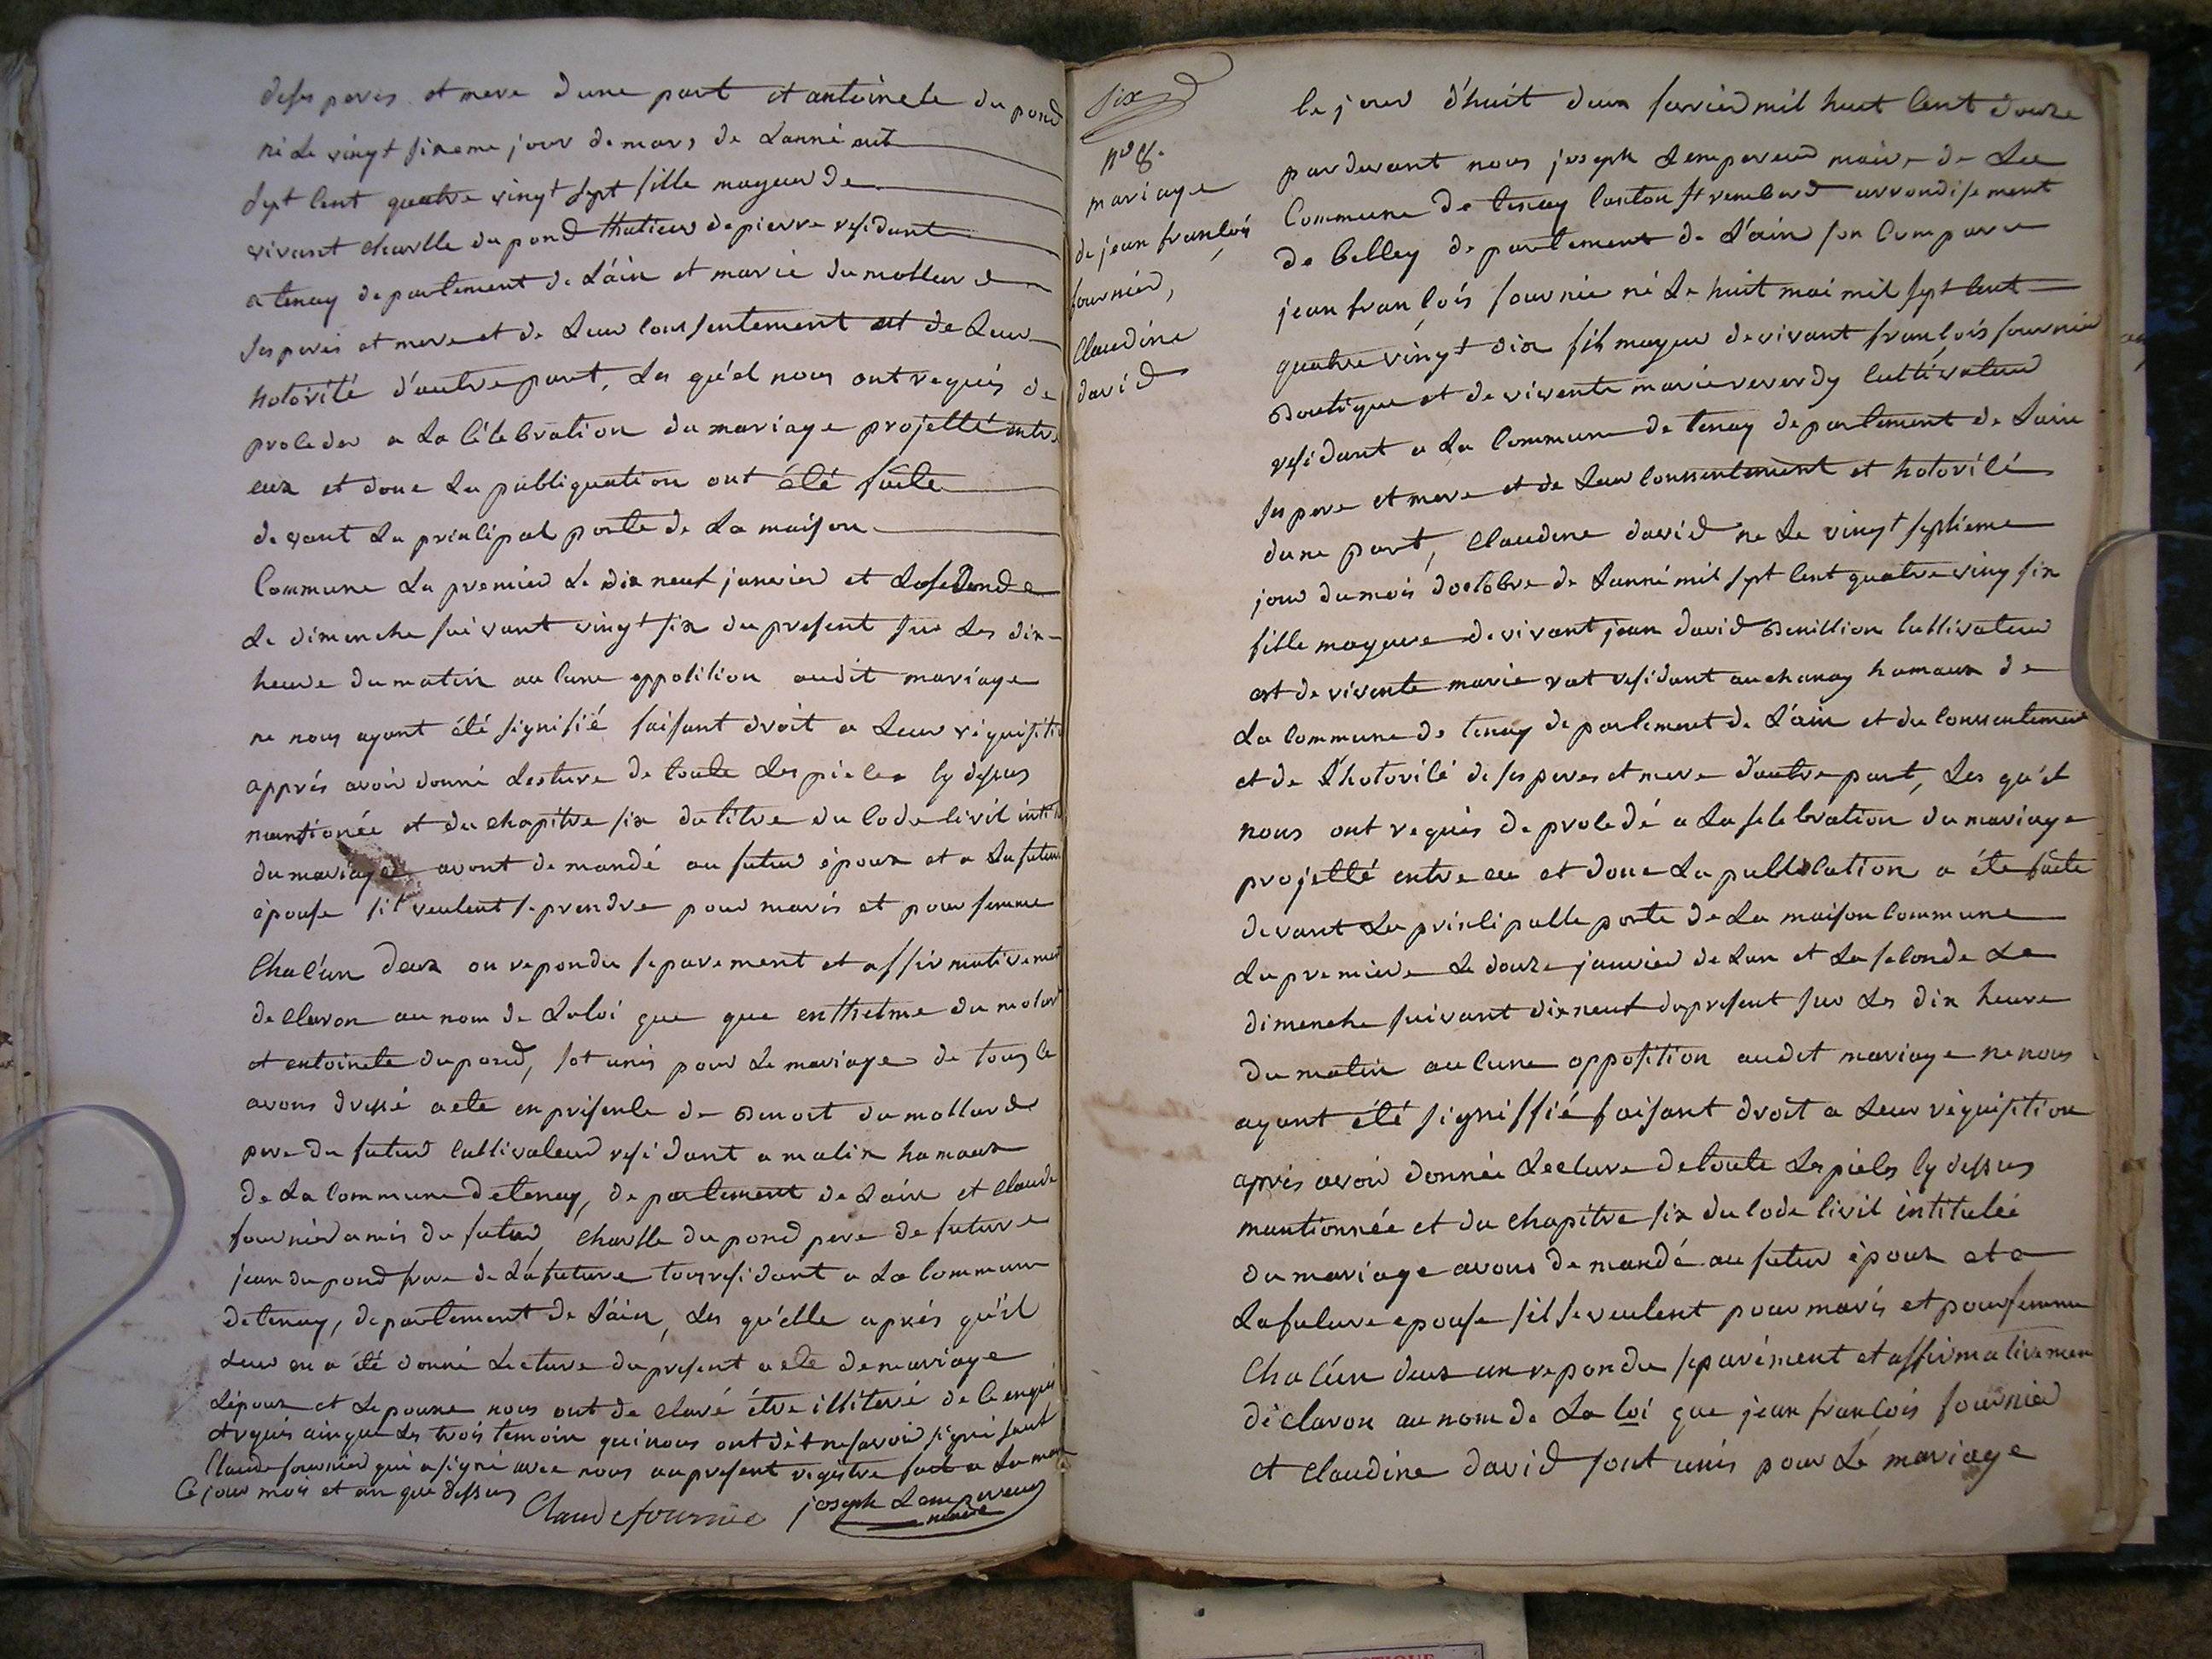 deses peres et mere dune part et antoinete du pond
né Le vingt sixeme jour de mars de Lanné mil
sept Cent quatre vingt sept fille mageur de
vivant Charlle du pond thalieur de pierre residant
a tenay departement de L'ain et marie dumollard
ses peres et mere et de Leur Consentement et de Leur
hotorité d'autre part, Les qu'el nous ont requis de
proceder a La Célebration du mariage projetté entre
eux et donc La publiquation ont été faite
devant La principal porte de La maison
Commune La premier Le dix neuf janvier et La seconde
Le dimenche suivant vingt six du present sur Les dix
heure du matin aucune oppotition audit mariage
ne nous ayant été signifié faisant droit a Leur requisitio
apprés avoir donné Lecture de toute Les pieces cy dessus
mantionée et du chapitre six du titre du Code Civil intit
du mariage avont demandé au futur époux et a La future
épouse s'il veulent se prendre pour maris et pour femme
Chac'un deux on repondu separement et affirmativement
declaron au nom de La loi que que enthelme du molard
et entoinete du pond, sot unis pour Le mariage de tous ce
avons dressé acte en présente de Benoit du mollard
pere du futur Cultivateur residant a malix hamaux
de La Commune de tenay, departement de Lain et Claude
fournier amis du futur, Charlle du pond pere de future
jean du pond frere de La future tous residant a La Commune
de tenay, departement de L'ain, Les qu'elle aprés qu'il
Leur en a été donné Lecture du present acte de mariage
Lépoux et Lepouse nous ont declaré être illiteré de ce enquis
et requis ainque Les trois temoin qui nous ont dit ne savoir signé sauf
Claude fournier qui a signé avec nous au present registre fait a La mai
Ce jour mois et an que dessus
Claude fournié joseph Lempereur
maire
six
nd 8.
mariage
de jean françois
fournier,
Claudine
david
le jour d'huit deux fevrier mil huit Cent douze
pardevant nous joseph Lempereur maire de La
Commune de tenay Canton St rembard arrondisement
de belley departement de L'ain son Comparu
jean françois fournie né Le huit mai mil sept Cent
quatre vingt dix fils mageur de vivant françois fournier
Boutique et de vivente marie reverdy Cultivateur
residant a La Commune de tenay departement de Lain
ses pere et mere et de Leur Conssentement et hotorité
dune part, Claudine david ne Le vingt septieme
jour du mois doctobre de Lanné mil sept Cent quatre ving six
fille mageure de vivant jean david Benillion Cultivateur
est de vivente marie rat residant au chanay hamaux de
La Commune de tenay departement de L'ain et du Conssentement
et de L'hotorité de ses peres et mere d'autre part, Les qu'el
nous ont requis de procedé a La selebration du mariage
projetté entre eu et donc La publication a éte faite
devant La principalle porte de La maison Commune
La premiere Le douze janvier de Lan et La seconde Le
dimenche suivant dix neuf du present sur Les dix heure
du matin aucune opposition audit mariage ne nous
ayant été signiffié faisant droit a Leur réquisition
aprés avoir donnée Lecture de toute Les pieces cy dessus
mantionnée et du chapitre six du Code Civil intitulée
du mariage avous demandé au futur époux et a
La future epouse s'il se veulent pour maris et pour femme
Chac'un deux on repondu separément et affirmativemen
déclaron au nom de La loi que jean françois fournier
et Claudine david sont unis pour Le mariage